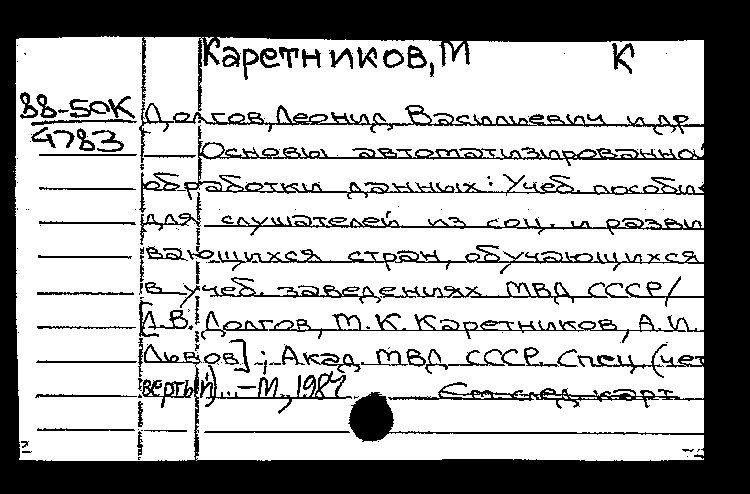 Каретников, М К
88-50К Долгов, Леонид Васильевич и др
4783 Основы автоматизированной
обработки данных: Учеб. пособие
для слушателей из соц. и разви
вающихся стран, обучающихся
в учеб. заведениях МВД СССР/
[Л.В. Долгов, М.К. Каретников, А.И.
Львов]; Акад. МВД СССР. Спец. (чет
вертый)...-М., 1987
См след карт.